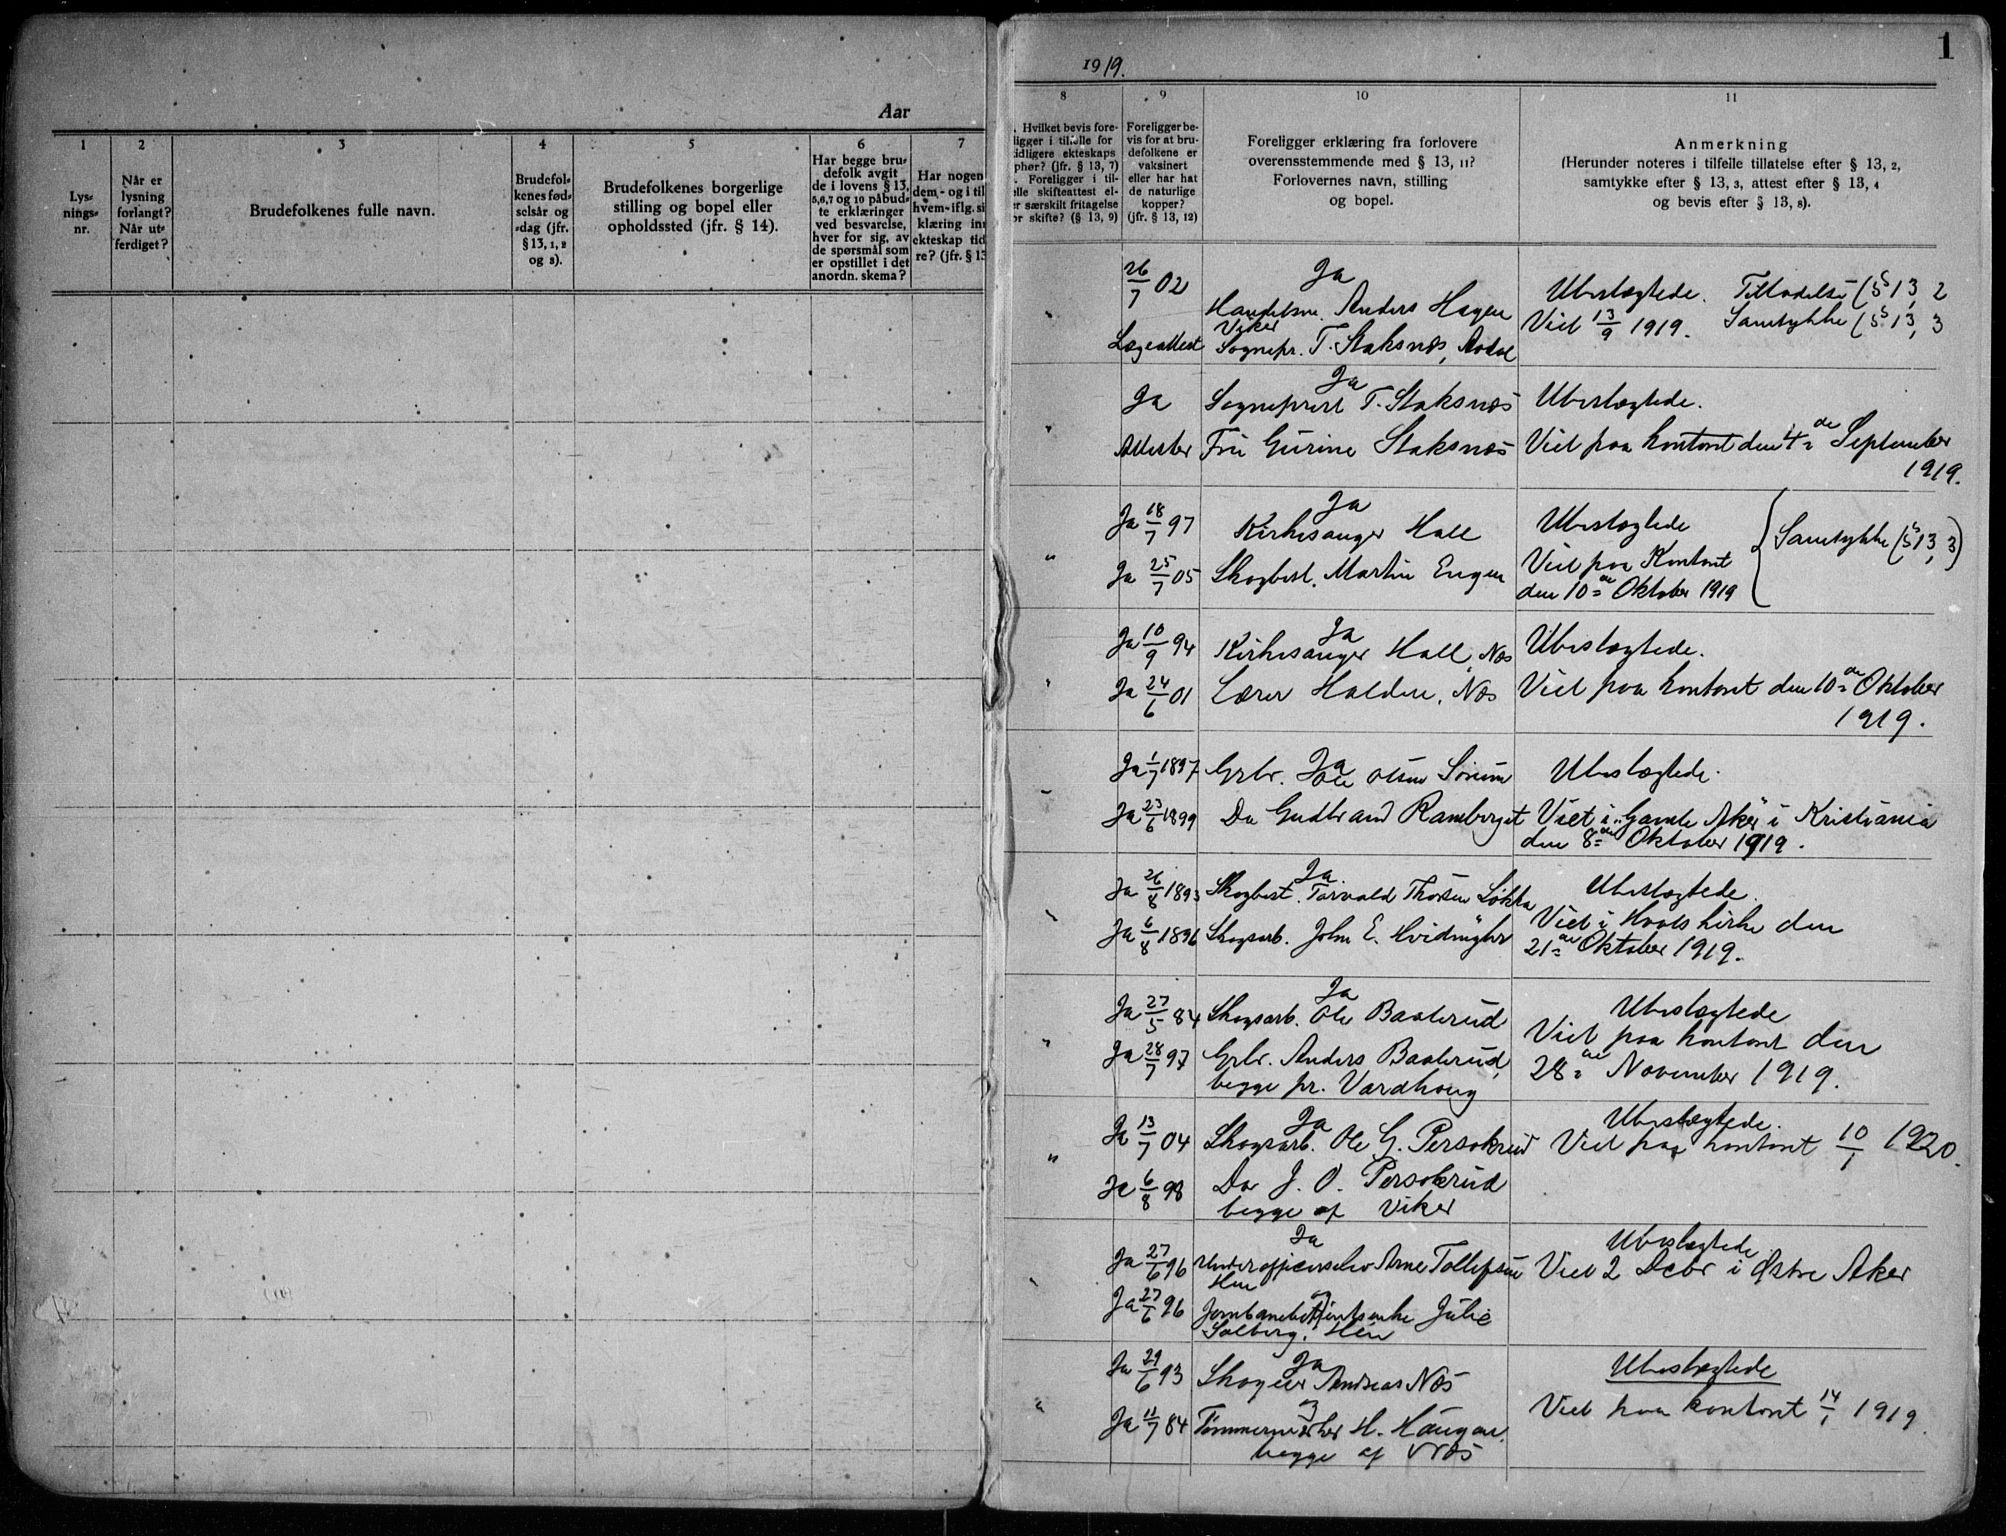 Aar
1
2
3
4
5
6
7
Lys-
nings-
nr.
Når er
lysning
forlangt?
Når ut-
ferdiget?
Brudefolkenes fulle navn.
Brudefol-
kenes fød-
selsår og
-dag (jfr.
§ 13, 1, 2
og 3).
Brudefolkenes borgerlige
stilling og bopel eller
opholdssted (jfr. § 14).
Har begge bru-
defolk avgit
de i lovens § 13,
5,6,7 og 10 påbud-
te erklæringer
ved besvarelse,
hver for sig, av
de spørsmål som
er opstillet i det
anordn. skema?
Har nogen
dem, - og i til
hvem - iflg. si
klæring in
ekteskap tid
re? (jfr. § 13
1
1919.
8
9
10
11
. Hvilket bevis fore-
ligger i tilfelle for
tidligere ekteskaps
phør? (jfr. § 13, 7)
. Foreligger i til-
elle skifteattest el-
er særskilt fritagelse
or skifte? (§ 13, 9)
Foreligger be-
vis for at bru-
defolkene er
vaksinert
eller har hat
de naturlige
kopper?
(jfr. § 13, 12)
Foreligger erklæring fra forlovere
overensstemmende med § 13, 11?
Forlovernes navn, stilling
og bopel.
Anmerkning
(Herunder noteres i tilfelle tillatelse efter § 13, 2,
samtykke efter § 13, 3, attest efter § 13, 4
og bevis efter § 13, 8).
26/7 02 Ja
Handelsm. Anders Hagen
Viker
Lægeattest Sognepr. T. Staksnæs, Aadal
Ubeslægtede. Tilladelse (§ 13, 2
Viet 13/9 1919. Samtykke (§ 13, 3
Ja
Ja Sogneprest T. Staksnæs Ubeslægtede.
Attester Fru Gurine Staksnæs Viet paa kontoret den 4de September
1919.
Ja 18/7 97 Ja
Kirkesanger Hall Ubeslægtede
Samtykke (§ 13, 3)
Ja 25/7 05 Skogbest. Martin Engen Viet paa Kontoret
den 10de Oktober 1919
Ja 10/9 94 Ja
Kirkesanger Hall, Næs Ubeslægtede.
Ja 24/6 01 Lærer Halden, Næs Viet paa kontoret den 10de Oktober
1919.
Ja 1/7 1897 Ja
Grbr. Ole Olsen Sørum Ubeslægtede.
Ja 23/6 1899 Do Gudbrand Ramberget Viet i "Gamle Aker" i Kristiania
den 8de Oktober 1919.
Ja 26/8 1893 Ja.
Skogbest. Torvald Thorsen Løkka Ubeslægtede.
Ja 6/8 1896 Skogsarb. John E. Viet i Hvals kirke den
21de Oktober 1919.
Ja 27/5 84 Ja
Skogsarb. Ole Baaterud Ubeslægtede
Viet paa kontoret den
Ja 28/7 97 Grbr. Anders Baaterud, 28de November 1919.
begge pr. Vardhoug
Ja 13/7 04 Ja
Skogsarb. Ole G. Persokrud Ubeslægtede.
Viet paa kontoret 10/1 1920.
Ja 6/8 98 Do J. O. Persokrud
begge af Viker
Ja
Ja 27/6 96 Underofficerselev Arne Tollefsen Ubeslægtede
Hen Viet 2 Decbr i Østre Aker
Ja 27/6 96 Jernbanebetjentsenke Julie
Solberg, Hen
Ja 29/6 93 Ja
Skogeier Andreas Næs Ubeslægtede
Ja 11/7 84 Tømmermerker H. Haugen, Viet paa kontoret 14/1 1919.
begge af Næs